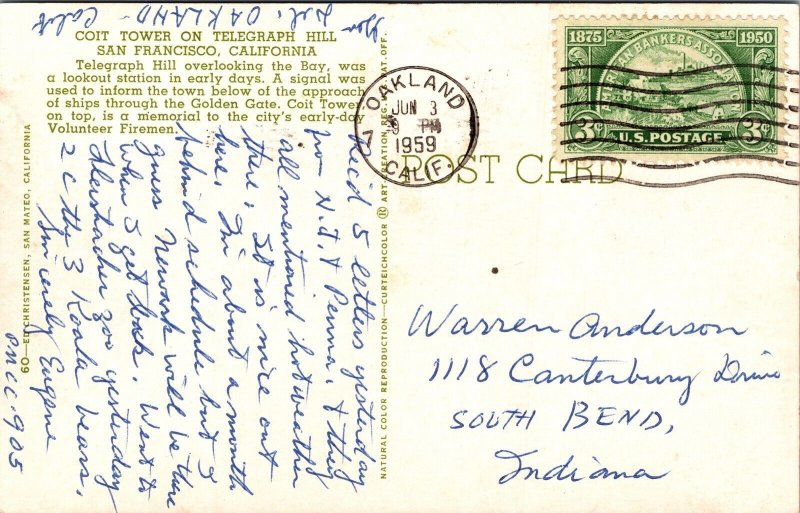 From
Gen. Del. OAKLAND - Calif
COIT TOWER ON TELEGRAPH HILL
SAN FRANCISCO, CALIFORNIA
Telegraph Hill overlooking the Bay, was
a lookout station in early days. A signal was
used to inform the town below of the approach
of ships through the Golden Gate. Coit Tower
on top, is a memorial to the city's early-day
Volunteer Firemen.
Rec'd 5 letters yesterday
from N.J. & Penna. & they
all mentioned hot weather
there. It is nice out
here. I'm about a month
behind schedule but I
guess Newark will be there
when I get back. Went to
Fleishacker zoo yesterday
2 c thy 3 Koala bears.
Sincerely Eugene
PNCC. 905
60—EITCHRISTENSEN, SAN MATEO, CALIFORNIA
NATURAL COLOR REPRODUCTION—CURTEICHCOLOR ® ART-CREATION REG. U.S. PAT. OFF.
POST CARD
OAKLAND
JUN 3
PM
1959
CALIF.
1875 1950
AMERICAN BANKERS ASSOCIATION
3¢ U.S. POSTAGE 3¢
Warren Anderson
1118 Canterbury Drive
SOUTH BEND,
Indiana